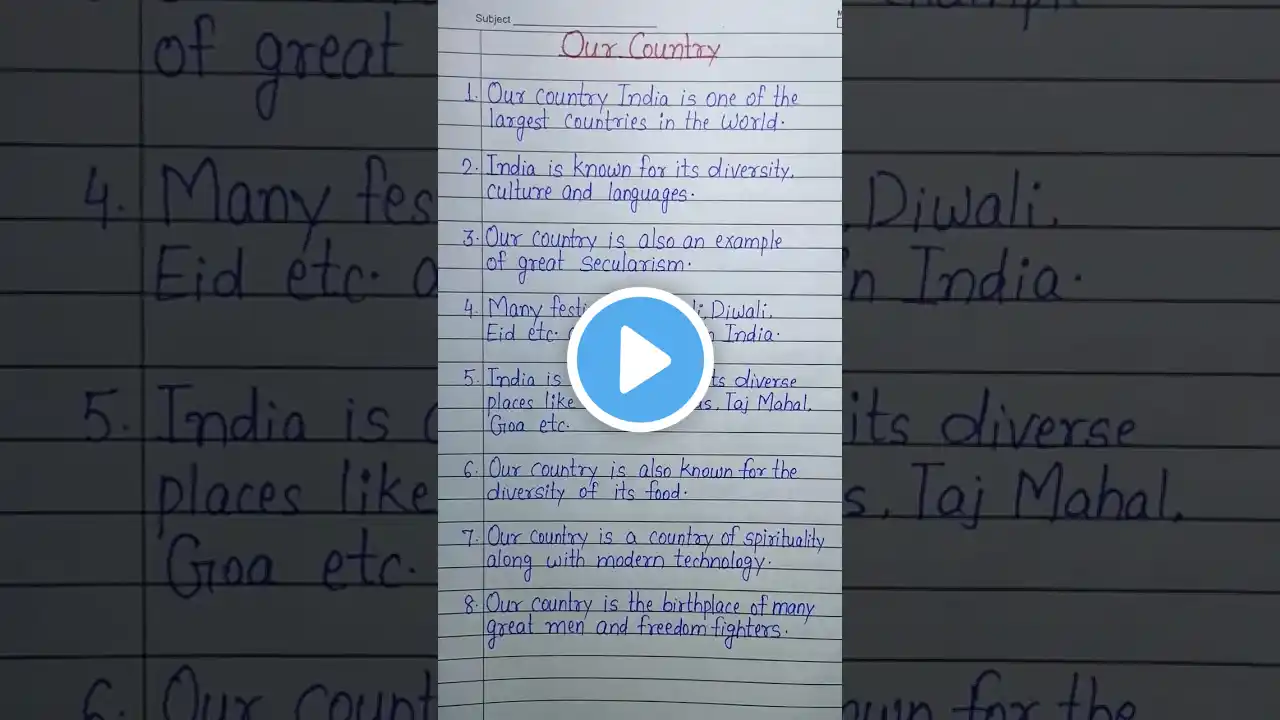 Subject
Our Country
1. Our country India is one of the
largest countries in the world.
2. India is known for its diversity,
culture and languages.
3. Our country is also an example
of great secularism.
4. Many Diwali,
Eid etc. India.
5. India is its diverse
places like Taj Mahal,
Goa etc.
6. Our country is also known for the
diversity of its food.
7. Our country is a country of spirituality
along with modern technology.
8. Our country is the birthplace of many
great men and freedom fighters.
of great
4. Many Diwali,
Eid etc. in India.
5. India is its diverse
places like Taj Mahal,
Goa etc.
6. Our known for the